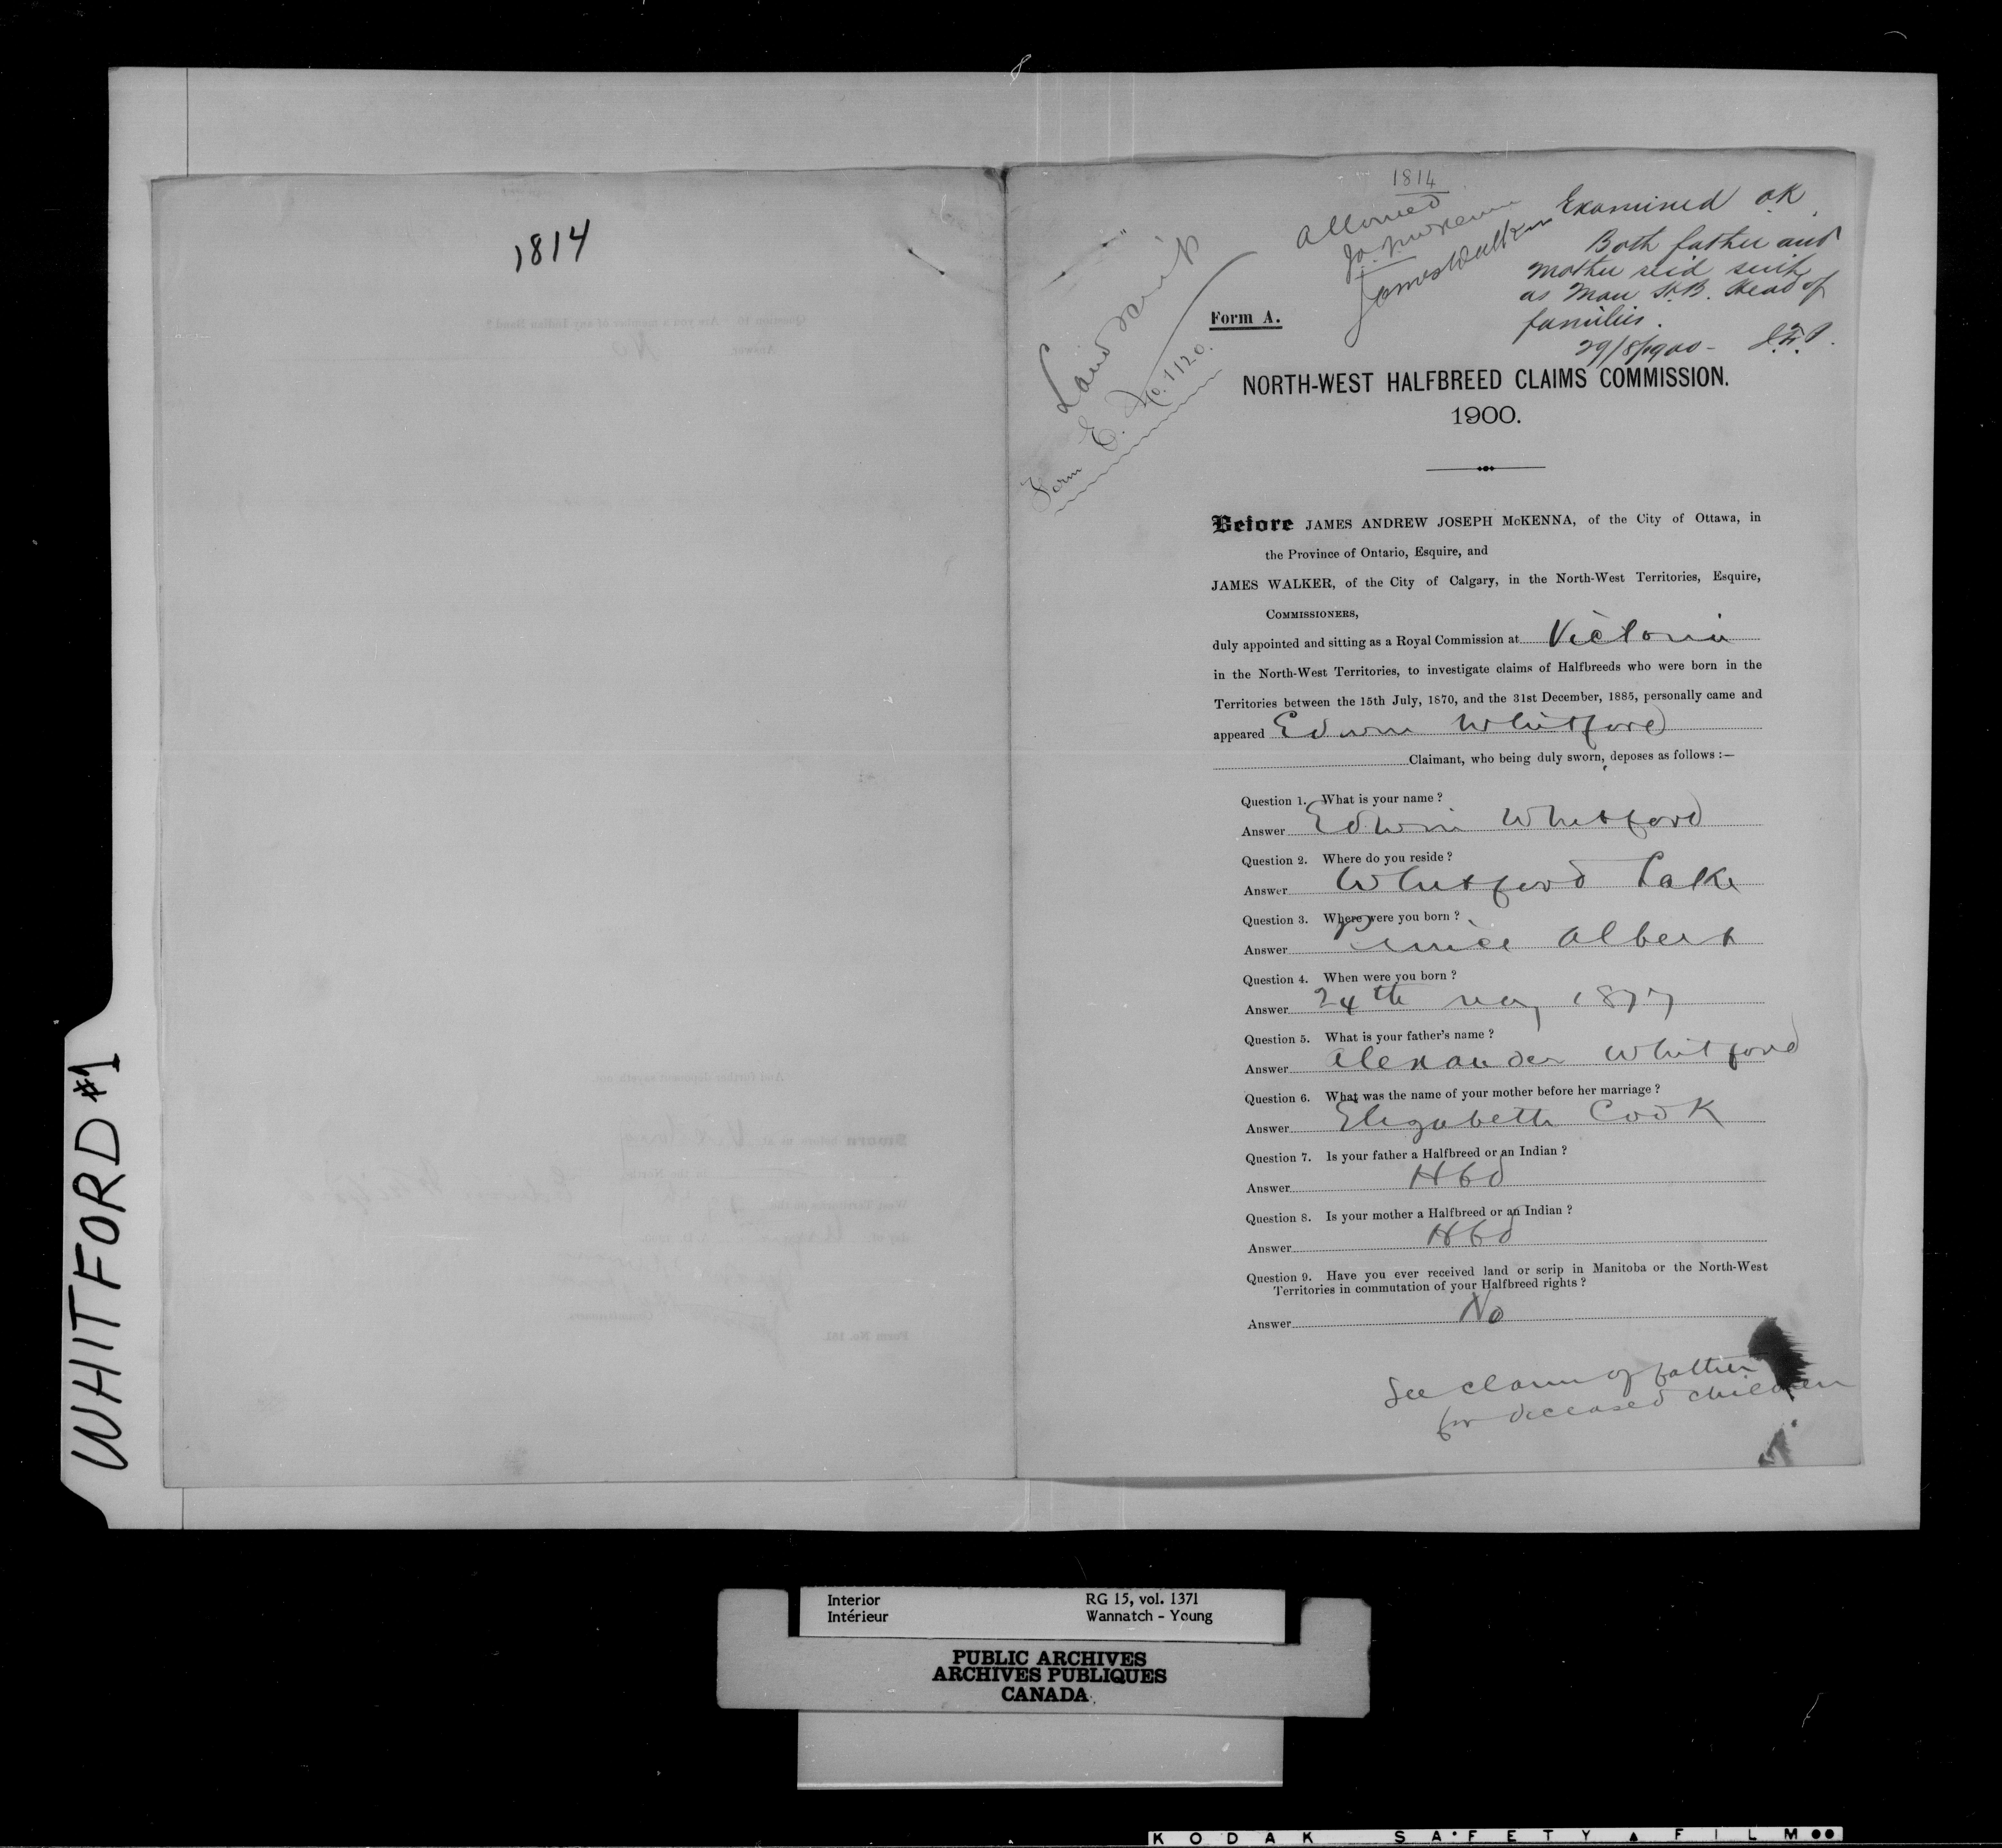 WHITFORD #1
1814
1814
Allowed
James Walker
Examined OK
Both father and
mother
as Man H.B. Head of
families.
29/8/1900 -
Land Scrip
Form E. No. 1120.
Form A.
NORTH-WEST HALFBREED CLAIMS COMMISSION.
1900.
Before JAMES ANDREW JOSEPH McKENNA, of the City of Ottawa, in
the Province of Ontario, Esquire, and
JAMES WALKER, of the City of Calgary, in the North-West Territories, Esquire,
COMMISSIONERS,
duly appointed and sitting as a Royal Commission at Victoria
in the North-West Territories, to investigate claims of Halfbreeds who were born in the
Territories between the 15th July, 1870, and the 31st December, 1885, personally came and
appeared Edwin Whitford
Claimant, who being duly sworn, deposes as follows :—
Question 1. What is your name ?
Answer Edwin Whitford
Question 2. Where do you reside ?
Answer Whitford Lake
Question 3. Where were you born ?
Answer Prince Albert
Question 4. When were you born ?
Answer 24th May 1877
Question 5. What is your father's name ?
Answer Alexander Whitford
Question 6. What was the name of your mother before her marriage ?
Answer Elizabeth Cook
Question 7. Is your father a Halfbreed or an Indian ?
Answer Hbd
Question 8. Is your mother a Halfbreed or an Indian ?
Answer Hbd
Question 9. Have you ever received land or scrip in Manitoba or the North-West
Territories in commutation of your Halfbreed rights ?
Answer No
See claim of father
for deceased children
Interior RG 15, vol. 1371
Intérieur Wannatch - Young
PUBLIC ARCHIVES
ARCHIVES PUBLIQUES
CANADA
KODAK SAFETY FILM